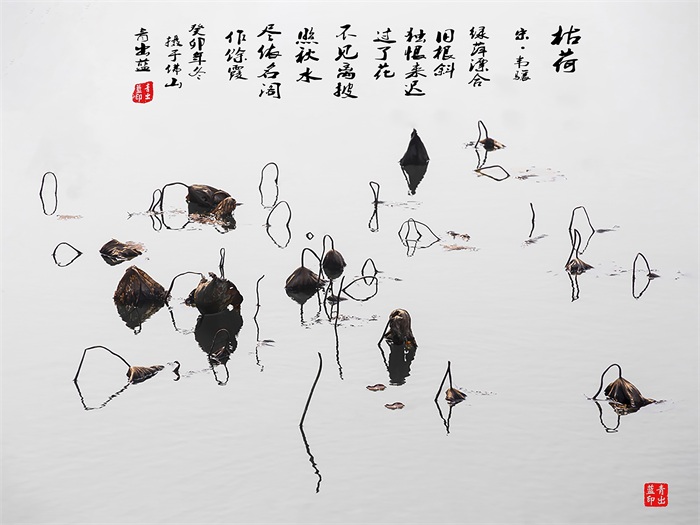 枯荷
宋·韦骧
绿萍漂合
旧根斜
独恨来迟
过了花
不见离披
照秋水
尽依名阁
作馀霞
癸卯年冬
摄于佛山
青出蓝
青出蓝印
青出蓝印